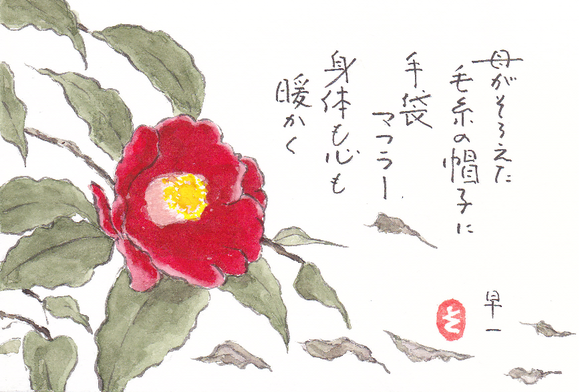 母がそろえた
毛糸の帽子に
手袋
マフラー
身体も心も
暖かく
早一